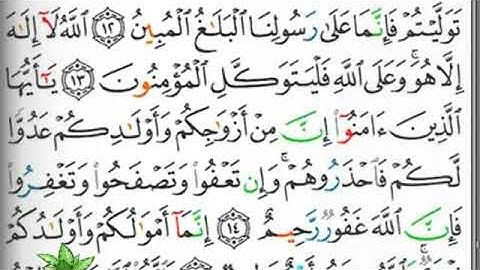 تَوَلَّيْتُمْ فَإِنَّمَا عَلَىٰ رَسُولِنَا ٱلْبَلَٰغُ ٱلْمُبِينُ ١٢ ٱللَّهُ لَآ إِلَٰهَ
إِلَّا هُوَ ۚ وَعَلَى ٱللَّهِ فَلْيَتَوَكَّلِ ٱلْمُؤْمِنُونَ ١٣ يَٰٓأَيُّهَا
ٱلَّذِينَ ءَامَنُوٓا۟ إِنَّ مِنْ أَزْوَٰجِكُمْ وَأَوْلَٰدِكُمْ عَدُوًّا
لَّكُمْ فَٱحْذَرُوهُمْ ۚ وَإِن تَعْفُوا۟ وَتَصْفَحُوا۟ وَتَغْفِرُوا۟
فَإِنَّ ٱللَّهَ غَفُورٌ رَّحِيمٌ ١٤ إِنَّمَآ أَمْوَٰلُكُمْ وَأَوْلَٰدُكُمْ